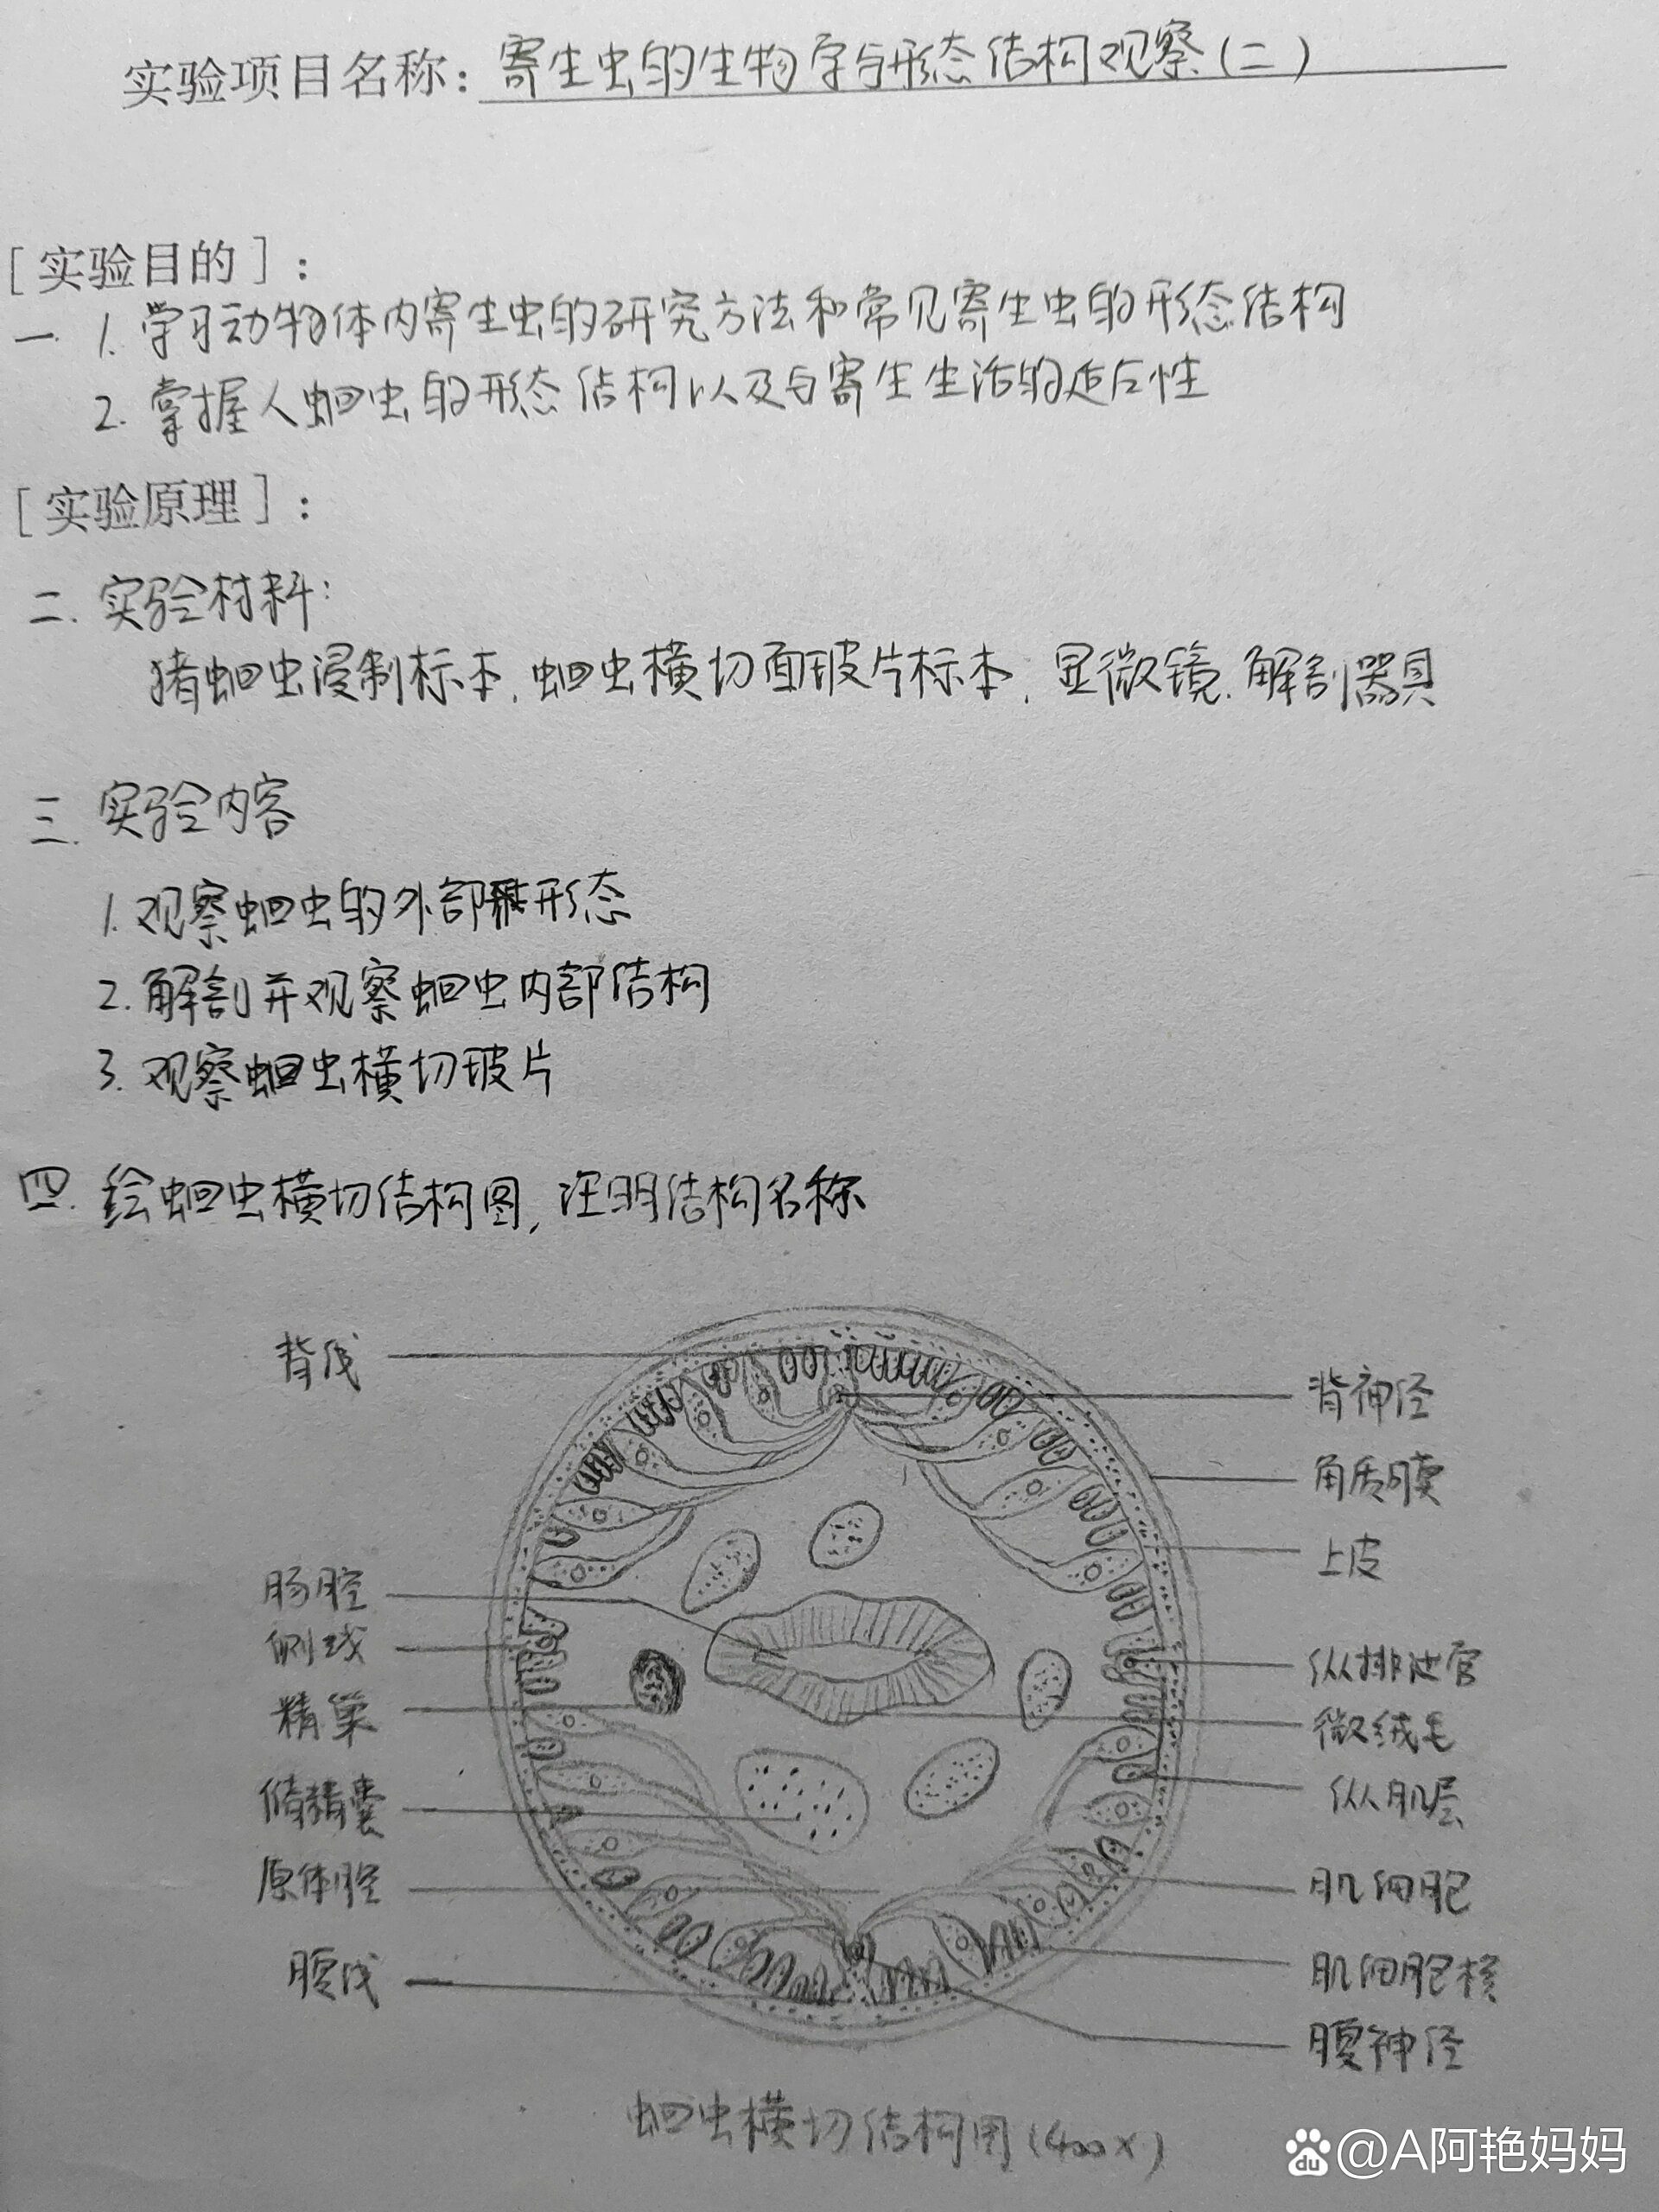 实验项目名称：寄生虫的生物学与形态结构观察(二)
[实验目的]：
一. 1. 学习动物体内寄生虫的研究方法和常见寄生虫的形态结构
2. 掌握人蛔虫的形态结构以及与寄生生活的适应性
[实验原理]：
二. 实验材料：
猪蛔虫浸制标本, 蛔虫横切面玻片标本, 显微镜. 解剖器具
三. 实验内容
1. 观察蛔虫的外部形态
2. 解剖并观察蛔虫内部结构
3. 观察蛔虫横切玻片
四. 绘蛔虫横切结构图, 注明结构名称
背线
背神经
角质膜
上皮
肠腔
侧线
纵排泄管
精巢
微绒毛
储精囊
纵肌层
原体腔
肌细胞
腹线
肌细胞核
腹神经
蛔虫横切结构图(400×)
du @A阿艳妈妈